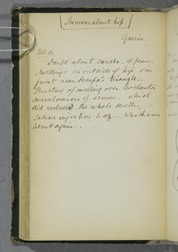 Tumour about hip
Guerin.
Feb. 12.
Doubt about cancer. of femur.
Swelling on outside of hip on
front near Scarpa's triangle.
Puncture of swelling over trochanter
several ounces of serum - which
did reduce the whole swelling.
Iodine injection
about again. .